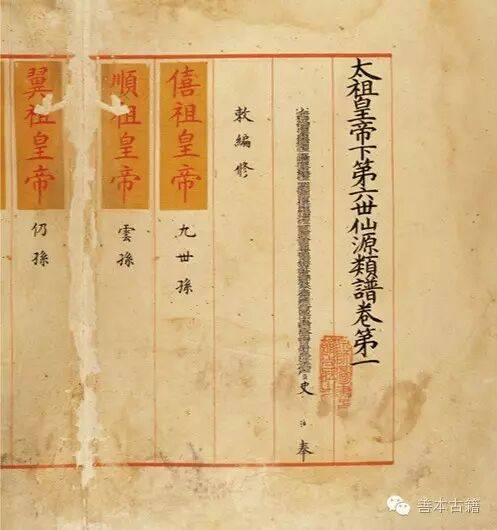 太祖皇帝下第六世仙源類譜卷第一
史 浩 奉
敕編修
僖祖皇帝 九世孫
順祖皇帝 雲孫
翼祖皇帝 仍孫
善本古籍